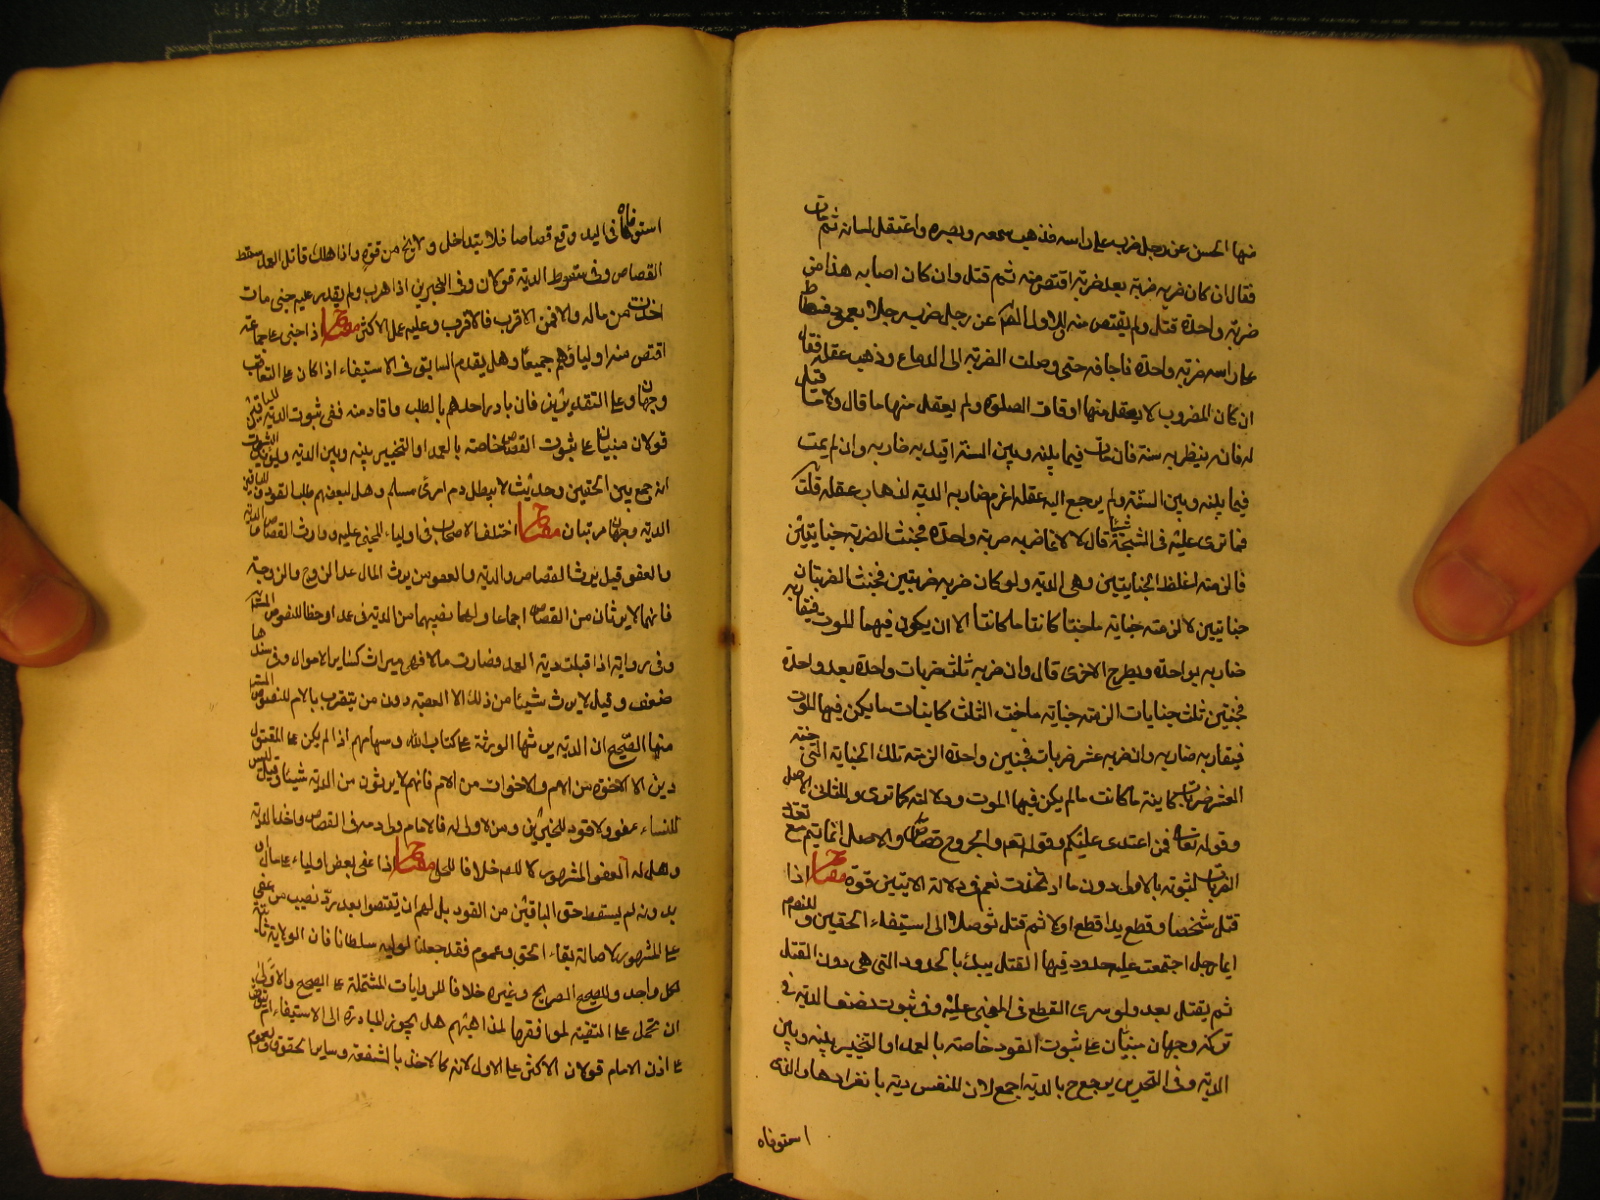 منها الحسن عن رجل ضرب على راسه فذهب سمعه وبصره واعتقل لسانه ثم مات
فقال ان كان ضربه ضربة بعد ضربة اقتص منه ثم قتل وان كان اصابه هذا من
ضربة واحدة قتل ولم يقتص منه وللاول الصحيح عن رجل ضرب رجلا بعمود فسطاط
على راسه ضربة واحدة فاجافه حتى وصلت الضربة الى الدماغ وذهب عقله فقال
ان كان المضروب لا يعقل منها اوقات الصلوة ولم يعقل منها ما قال ولا ما قيل
له فانه ينتظر به سنة فان مات فيما بينه وبين السنة اقيد به ضاربه وان لم يمت
فيما بينه وبين السنة ولم يرجع اليه عقله اغرم ضاربه الدية لذهاب عقله قلت
فما ترى عليه في الشجة شيئا قال لا لانما ضربه ضربة واحدة فجنت الضربة جنايتين
فالزمته اغلظ الجنايتين وهي الدية ولو كان ضربه ضربتين فجنت الضربتان
جنايتين لالزمته جناية ما جنتا كانتا ما كانتا الا ان يكون فيهما الموت فيقاد به
ضاربه بواحدة ويطرح الاخرى قال وان ضربه ثلث ضربات واحدة بعد واحدة
فجنين ثلث جنايات الزمته جناية ما جنت الثلث كاينات ما يكن فيها الموت
فيقاد به ضاربه وان ضربه عشر ضربات فجنين واحدة الزمته تلك الجناية التي جنته
العشر ضربات كاينة ما كانت ما لم يكن فيها الموت ودلالته كما ترى وللثاني الاصل
وقوله تعالى فمن اعتدى عليكم وقوله تعالى والجروح قصاص والاصل انما يتم مع تعدد
الضربات لثبوته بالاول دون ما اذا اتحدت نعم في دلالة الايتين قوة مفتاح اذا
قتل شخصا وقطع يدا قطع اولا ثم قتل توصلا الى استيفاء الحقين وللنصوص
ايما رجل اجتمعت عليه حدود فيها القتل يبدأ بالحدود التي هي دون القتل
ثم يقتل بعد ولو سرى القطع في المجني عليه وفي ثبوت نصف الدية في
تركته وجهان مبنيان على ثبوت القود خاصة بالعمد او التخيير بينه وبين
الدية وفي التحرير يرجع ح بالدية اجمع لان للنفس دية بانفرادها والذي
استوفاه
استوفاه في اليد وقع قصاصا فلا يتداخل ولا يخ من قوة واذا هلك قاتل العمد سقط
القصاص وفي سقوط الدية قولان وفي الخبرين اذا هرب ولم يقدر عليه حتى مات
اخذت من ماله والا فمن الاقرب فالاقرب وعليه عمل الاكثر مفتاح اذا جنى على جماعة
اقتص منه اولياؤهم جميعا وهل يقدم السابق في الاستيفاء اذا كان على التعاقب
وجهان وعلى التقديرين فان بادر احدهم بالطلب واقاد منه ففي ثبوت الدية للباقين
قولان مبنيان على ثبوت القصاص خاصة بالعمد او التخيير بينه وبين الدية ويؤيد الثبوت
انه جمع بين الحقين وحديث لا يبطل دم امرئ مسلم وهل لبعضهم طلب القود وللباقين
الدية وجهان مرتبان مفتاح اختلف الاصحاب في اولياء المجني عليه ووارث القصاص والدية
والعفو قيل يرث القصاص والدية والعفو من يرث المال عدا الزوج والزوجة
فانهما لا يرثان من القصاص اجماعا ولهما نصيبهما من الدية في عمد او خطا للنصوص المشتركة
وفي رواية اذا قبلت دية العمد فصارت مالا فهي ميراث كساير الاموال وفي سندها
ضعف وقيل لا يرث شيئا من ذلك الا العصبة دون من يتقرب بالام للنصوص المستفيضة
منها الصحيح ان الدية يرثها الورثة على كتاب الله وسهامهم اذا لم يكن على المقتول
دين الا الاخوة من الام والاخوات من الام فانهم لا يرثون من الدية شيئا وقيل ليس
للنساء عفو ولا قود للخبرين ومن لا ولي له فالامام ولي دمه في القصاص واخذ الدية
وهل له العفو المشهور لا للصحيح خلافا للحلي مفتاح اذا عفى بعض اولياء على مال او
بدونه لم يسقط حق الباقين من القود بل لهم ان يقتصوا بعد رد نصيب من عفى
على المشهور لاصالة بقاء الحق وعموم فقد جعلنا لوليه سلطانا فان الولاية ثابتة
لكل واحد وللصحيح الصريح وغيره خلافا للروايات المشتملة على الصحيح والاولى
ان تحمل على التقية لموافقها لمذاهبهم هل يجوز المبادرة الى الاستيفاء ام يتوقف
على اذن الامام قولان الاكثر على الاول لانه كالاخذ بالشفعة وساير الحقوق ولعموم